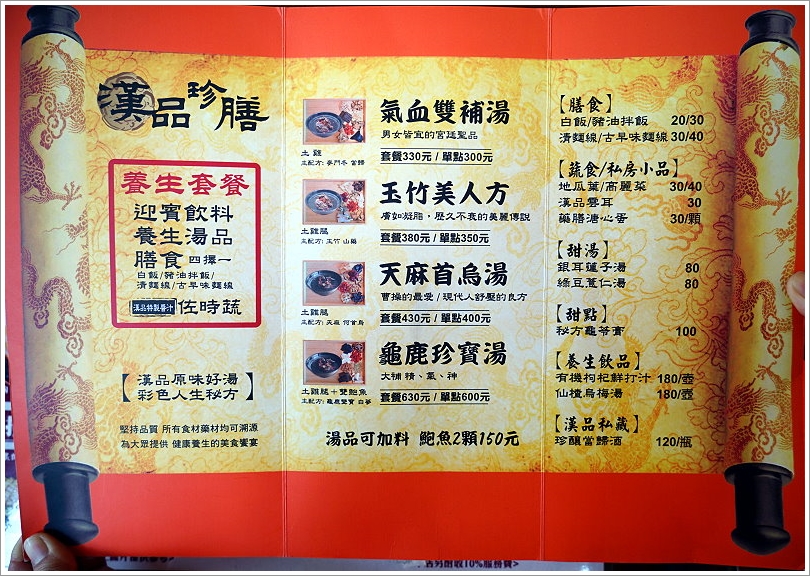 漢品珍膳
養生套餐
迎賓飲料
養生湯品
膳食 四擇一
白飯/豬油拌飯/
清麵線/古早味麵線
漢品特製醬汁 佐時蔬
【漢品原味好湯
彩色人生秘方】
堅持品質 所有食材藥材均可溯源
為大眾提供 健康養生的美食饗宴
氣血雙補湯
男女皆宜的宮廷聖品
土雞
主配方: 麥門冬 當歸
套餐330元 / 單點300元
玉竹美人方
膚如凝脂，歷久不衰的美麗傳說
土雞腿
主配方: 玉竹 山藥
套餐380元 / 單點350元
天麻首烏湯
曹操的最愛 / 現代人舒壓的良方
土雞腿
主配方: 天麻 何首烏
套餐430元 / 單點400元
龜鹿珍寶湯
大補 精、氣、神
土雞腿＋雙鮑魚
主配方: 龜鹿雙寶 白蔘
套餐630元 / 單點600元
湯品可加料 鮑魚2顆150元
【膳食】
白飯/豬油拌飯 20/30
清麵線/古早味麵線 30/40
【蔬食/私房小品】
地瓜葉/高麗菜 30/40
漢品雲耳 30
藥膳溏心蛋 30/顆
【甜湯】
銀耳蓮子湯 80
綠豆薏仁湯 80
【甜點】
秘方龜苓膏 100
【養生飲品】
有機枸杞鮮打汁 180/壺
仙楂烏梅湯 180/壺
【漢品私藏】
珍釀當歸酒 120/瓶